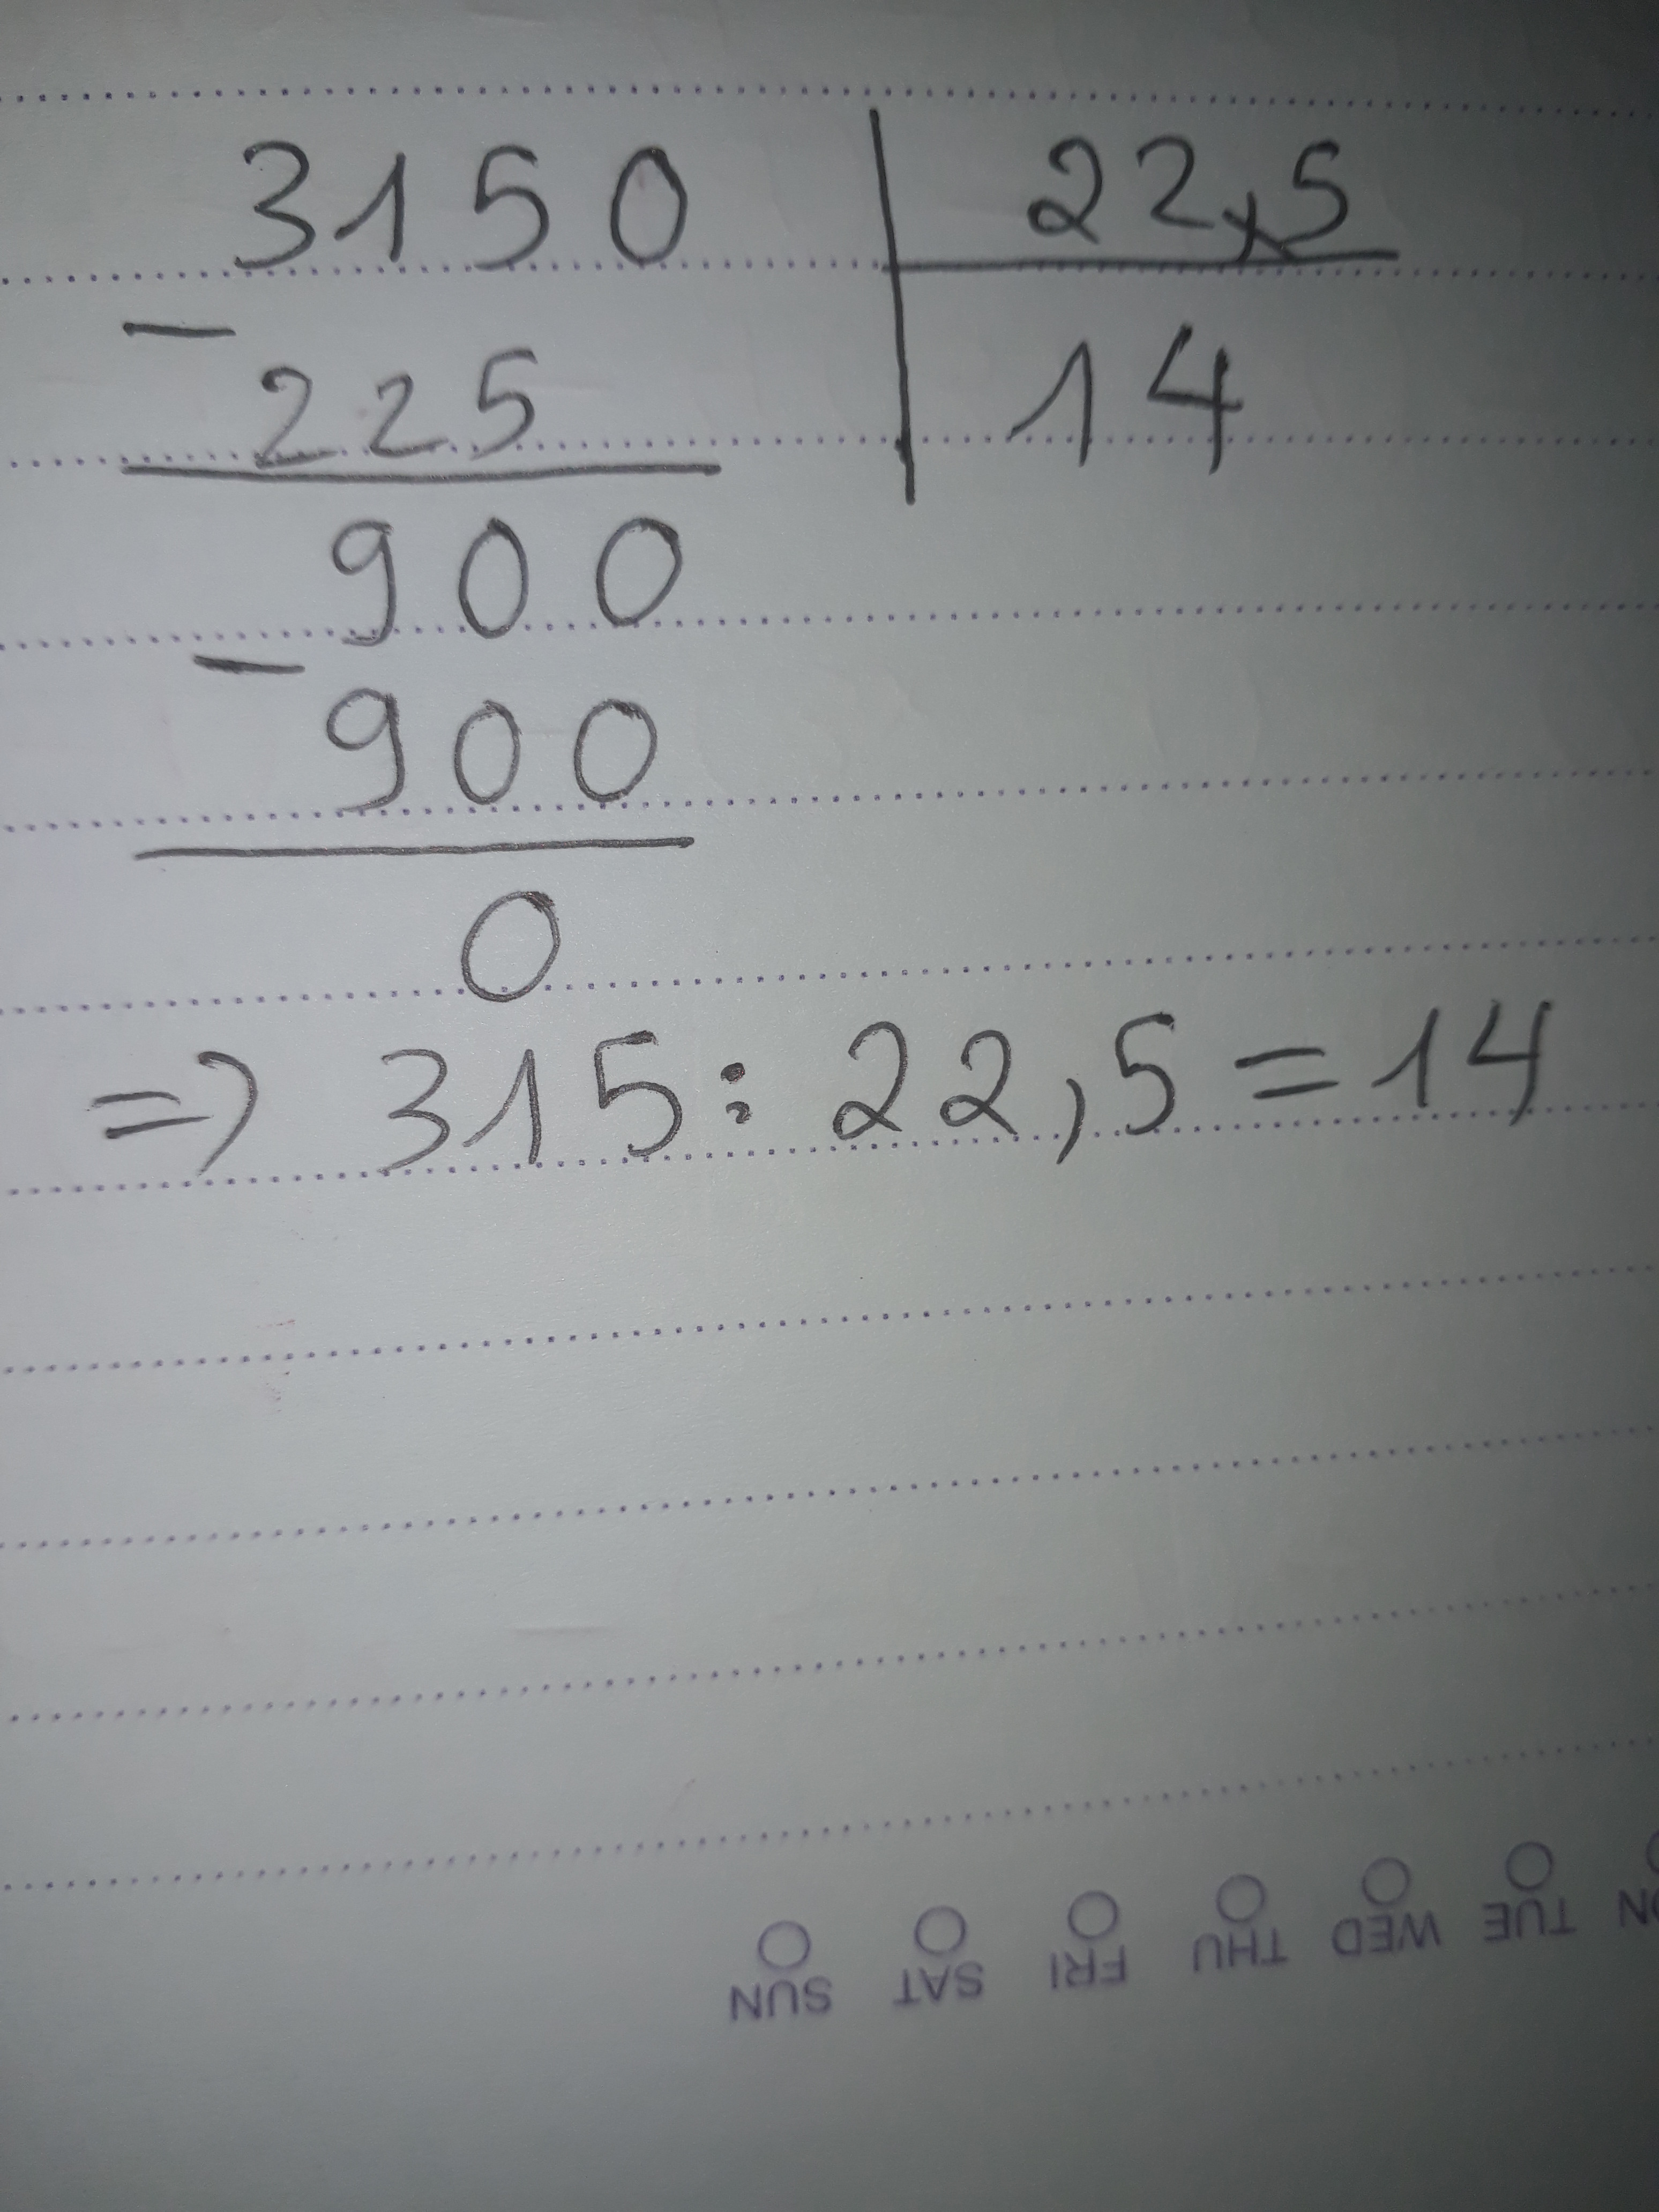 3150 22,5
- 225 14
900
- 900
0
=> 315 : 22,5 = 14
SUN SAT FRI THU WED TUE